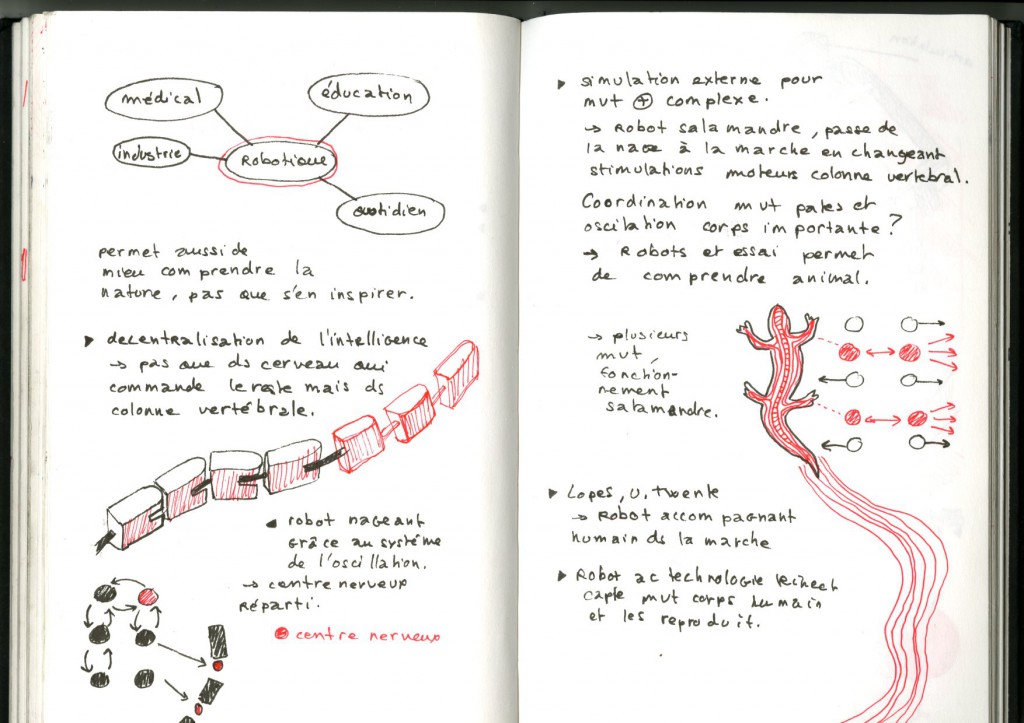 médical
éducation
industrie
Robotique
quotidien
permet aussi de
mieu comprendre la
nature, pas que s'en inspirer.
decentralisation de l'intelligence
→ pas que ds cerveau qui
commande le reste mais ds
colonne vertébrale.
robot nageant
grâce au système
de l'oscillation.
→ centre nerveux
réparti.
centre nerveux
simulation externe pour
mvt ⊕ complexe.
→ Robot salamandre, passe de
la nage à la marche en changeant
stimulations moteurs colonne vertebral.
Coordination mvt pates et
oscilation corps importante?
→ Robots et essai permet
de comprendre animal.
→ plusieurs
mvt,
fonction-
nement
salamandre.
Lopes, U. twente
→ Robot accompagnant
humain ds la marche
Robot ac technologie Kinect
capte mvt corps humain
et les reproduit.